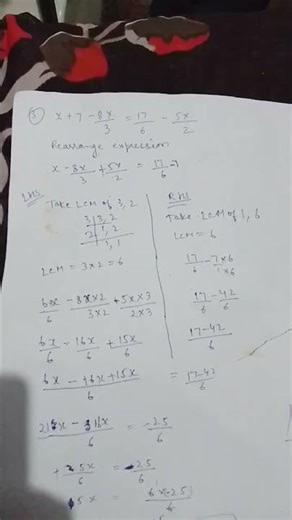 ③ x + 7 - 8x/3 = 17/6 - 5x/2
Rearrange expression
x - 8x/3 + 5x/2 = 17/6 - 7
LHS
Take LCM of 3, 2
3 | 3, 2
2 | 1, 2
1, 1
LCM = 3×2 = 6
6x/6 - 8x×2/3×2 + 5x×3/2×3
6x/6 - 16x/6 + 15x/6
6x - 16x + 15x/6
RHS
Take LCM of 1, 6
LCM = 6
17/6 - 7×6/1×6
17/6 - 42/6
17-42/6
= 17-42/6
21x - 16x/6 = -25/6
+5x/6 = -25/6
5x = 6×-25/6